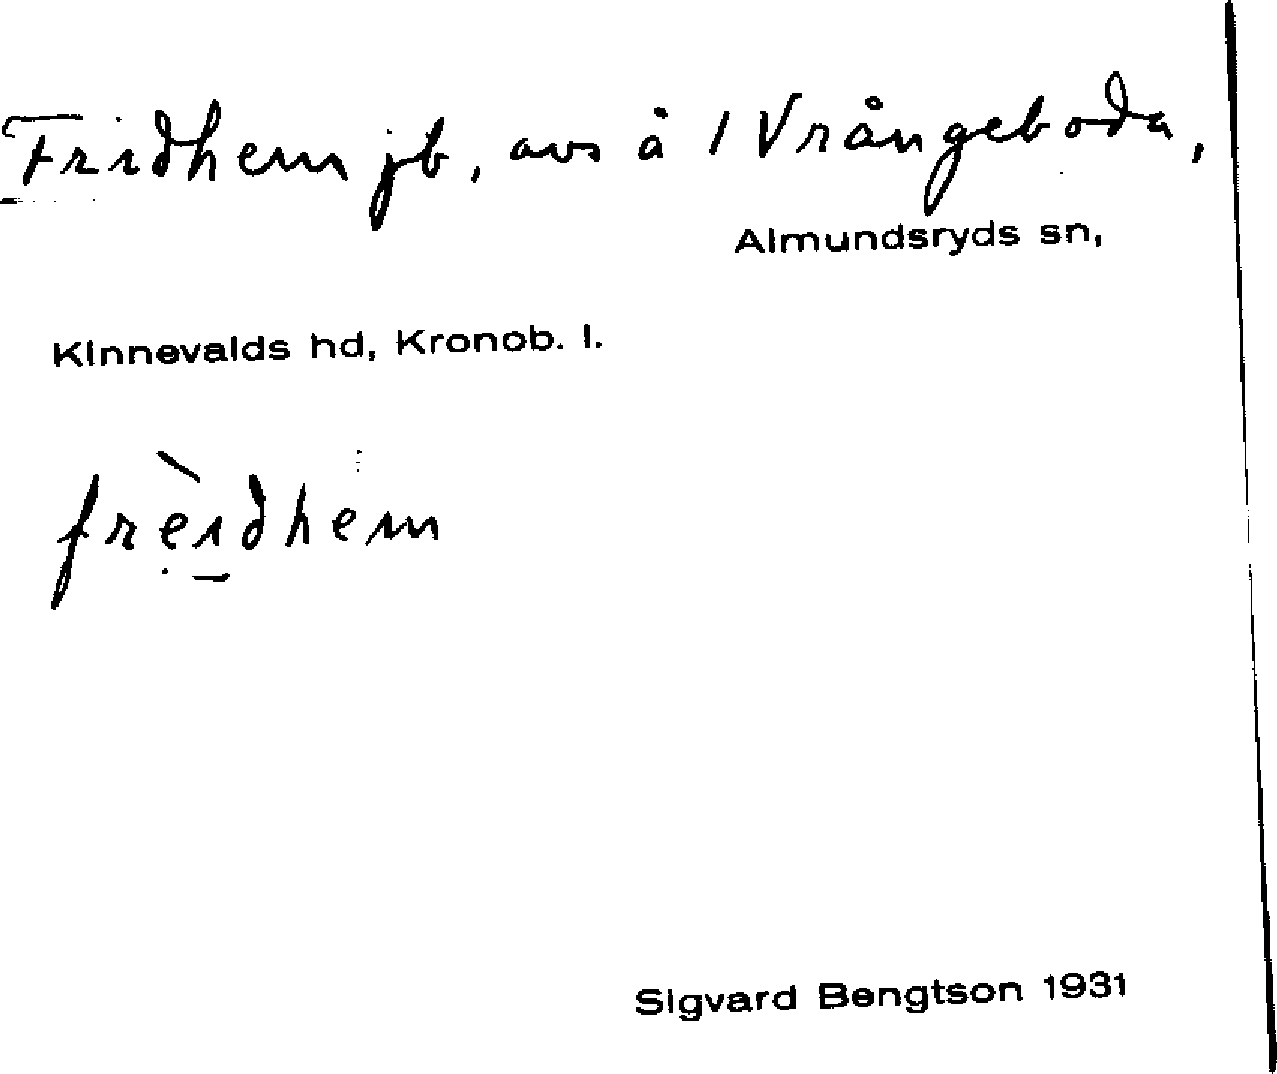 Fridhem jb, avs å 1 Vrångeboda,
Almundsryds sn,
Kinnevalds hd, Kronob. l.
frèi̱dhem
Sigvard Bengtson 1931